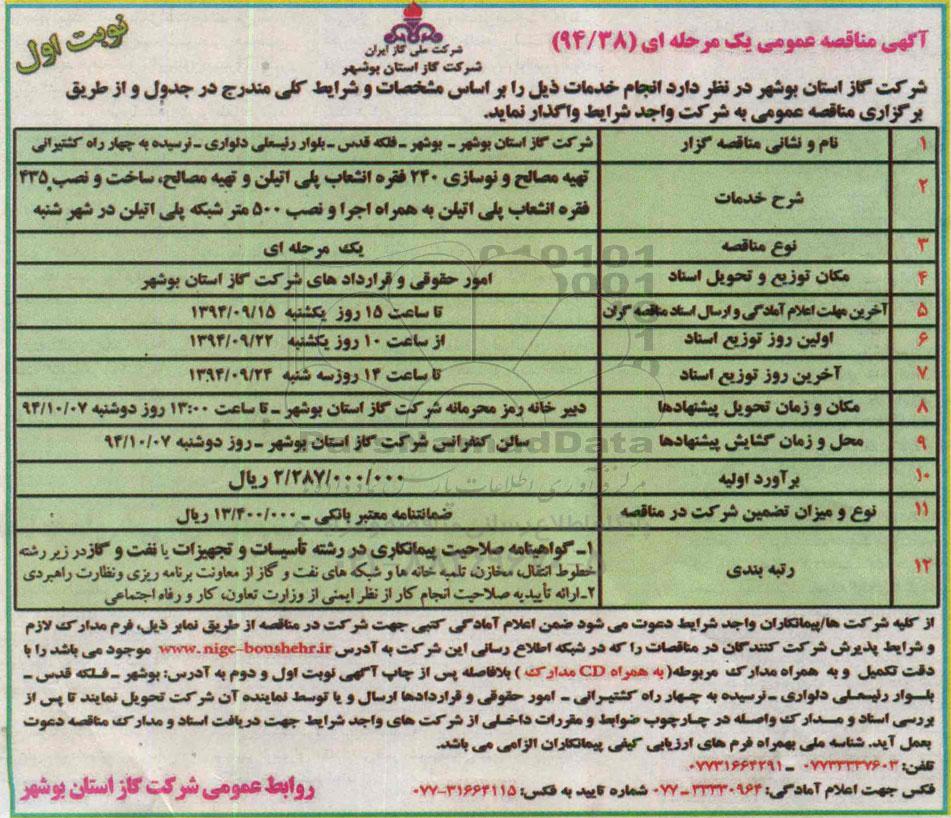 نوبت اول
شرکت ملی گاز ایران
شرکت گاز استان بوشهر
آگهی مناقصه عمومی یک مرحله ای (۹۴/۳۸)
شرکت گاز استان بوشهر در نظر دارد انجام خدمات ذیل را بر اساس مشخصات و شرایط کلی مندرج در جدول و از طریق
برگزاری مناقصه عمومی به شرکت واجد شرایط واگذار نماید.
۱ نام و نشانی مناقصه گزار شرکت گاز استان بوشهر ـ بوشهر ـ فلکه قدس ـ بلوار رئیسعلی دلواری ـ نرسیده به چهار راه کشتیرانی
۲ شرح خدمات تهیه مصالح و نوسازی ۲۴۰ فقره انشعاب پلی اتیلن و تهیه مصالح، ساخت و نصب ۴۳۵
فقره انشعاب پلی اتیلن به همراه اجرا و نصب ۵۰۰ متر شبکه پلی اتیلن در شهر شنبه
۳ نوع مناقصه یک مرحله ای
۴ مکان توزیع و تحویل اسناد امور حقوقی و قرارداد های شرکت گاز استان بوشهر
۵ آخرین مهلت اعلام آمادگی و ارسال اسناد مناقصه گران تا ساعت ۱۵ روز یکشنبه ۱۳۹۴/۰۹/۱۵
۶ اولین روز توزیع اسناد از ساعت ۱۰ روز یکشنبه ۱۳۹۴/۰۹/۲۲
۷ آخرین روز توزیع اسناد تا ساعت ۱۴ روزسه شنبه ۱۳۹۴/۰۹/۲۴
۸ مکان و زمان تحویل پیشنهادها دبیر خانه رمز محرمانه شرکت گاز استان بوشهر ـ تا ساعت ۱۳:۰۰ روز دوشنبه ۹۴/۱۰/۰۷
۹ محل و زمان گشایش پیشنهادها سالن کنفرانس شرکت گاز استان بوشهر ـ روز دوشنبه ۹۴/۱۰/۰۷
۱۰ برآورد اولیه ۲/۲۸۷/۰۰۰/۰۰۰ ریال
۱۱ نوع و میزان تضمین شرکت در مناقصه ضمانتنامه معتبر بانکی ـ ۱۳/۴۰۰/۰۰۰ ریال
۱۲ رتبه بندی ۱ـ گواهینامه صلاحیت پیمانکاری در رشته تأسیسات و تجهیزات یا نفت و گازدر زیر رشته
خطوط انتقال، مخازن، تلمبه خانه ها و شبکه های نفت و گاز از معاونت برنامه ریزی ونظارت راهبردی
۲ـ ارائه تأییدیه صلاحیت انجام کار از نظر ایمنی از وزارت تعاون، کار و رفاه اجتماعی
ParsNamadData
از کلیه شرکت ها/پیمانکاران واجد شرایط دعوت می شود ضمن اعلام آمادگی کتبی جهت شرکت در مناقصه از طریق نمابر ذیل، فرم مدارک لازم
و شرایط پذیرش شرکت کنندگان در مناقصات را که در شبکه اطلاع رسانی این شرکت به آدرس www.nigc-boushehr.ir موجود می باشد را با
دقت تکمیل و به همراه مدارک مربوطه(به همراه CD مدارک ) بلافاصله پس از چاپ آگهی نوبت اول و دوم به آدرس: بوشهر ـ فلکه قدس ـ
بلوار رئیسعلی دلواری ـ نرسیده به چهار راه کشتیرانی ـ امور حقوقی و قراردادها ارسال و یا توسط نماینده آن شرکت تحویل نمایند تا پس از
بررسی اسناد و مدارک واصله در چارچوب ضوابط و مقررات داخلی از شرکت های واجد شرایط جهت دریافت اسناد و مدارک مناقصه دعوت
بعمل آید. شناسه ملی بهمراه فرم های ارزیابی کیفی پیمانکاران الزامی می باشد.
تلفن: ۰۷۷۳۳۳۳۷۶۰۳ ـ ۰۷۷۳۱۶۶۴۲۹۱
فکس جهت اعلام آمادگی: ۳۳۳۳۰۹۶۴-۰۷۷ شماره تایید به فکس: ۳۱۶۶۴۱۱۵-۰۷۷
روابط عمومی شرکت گاز استان بوشهر